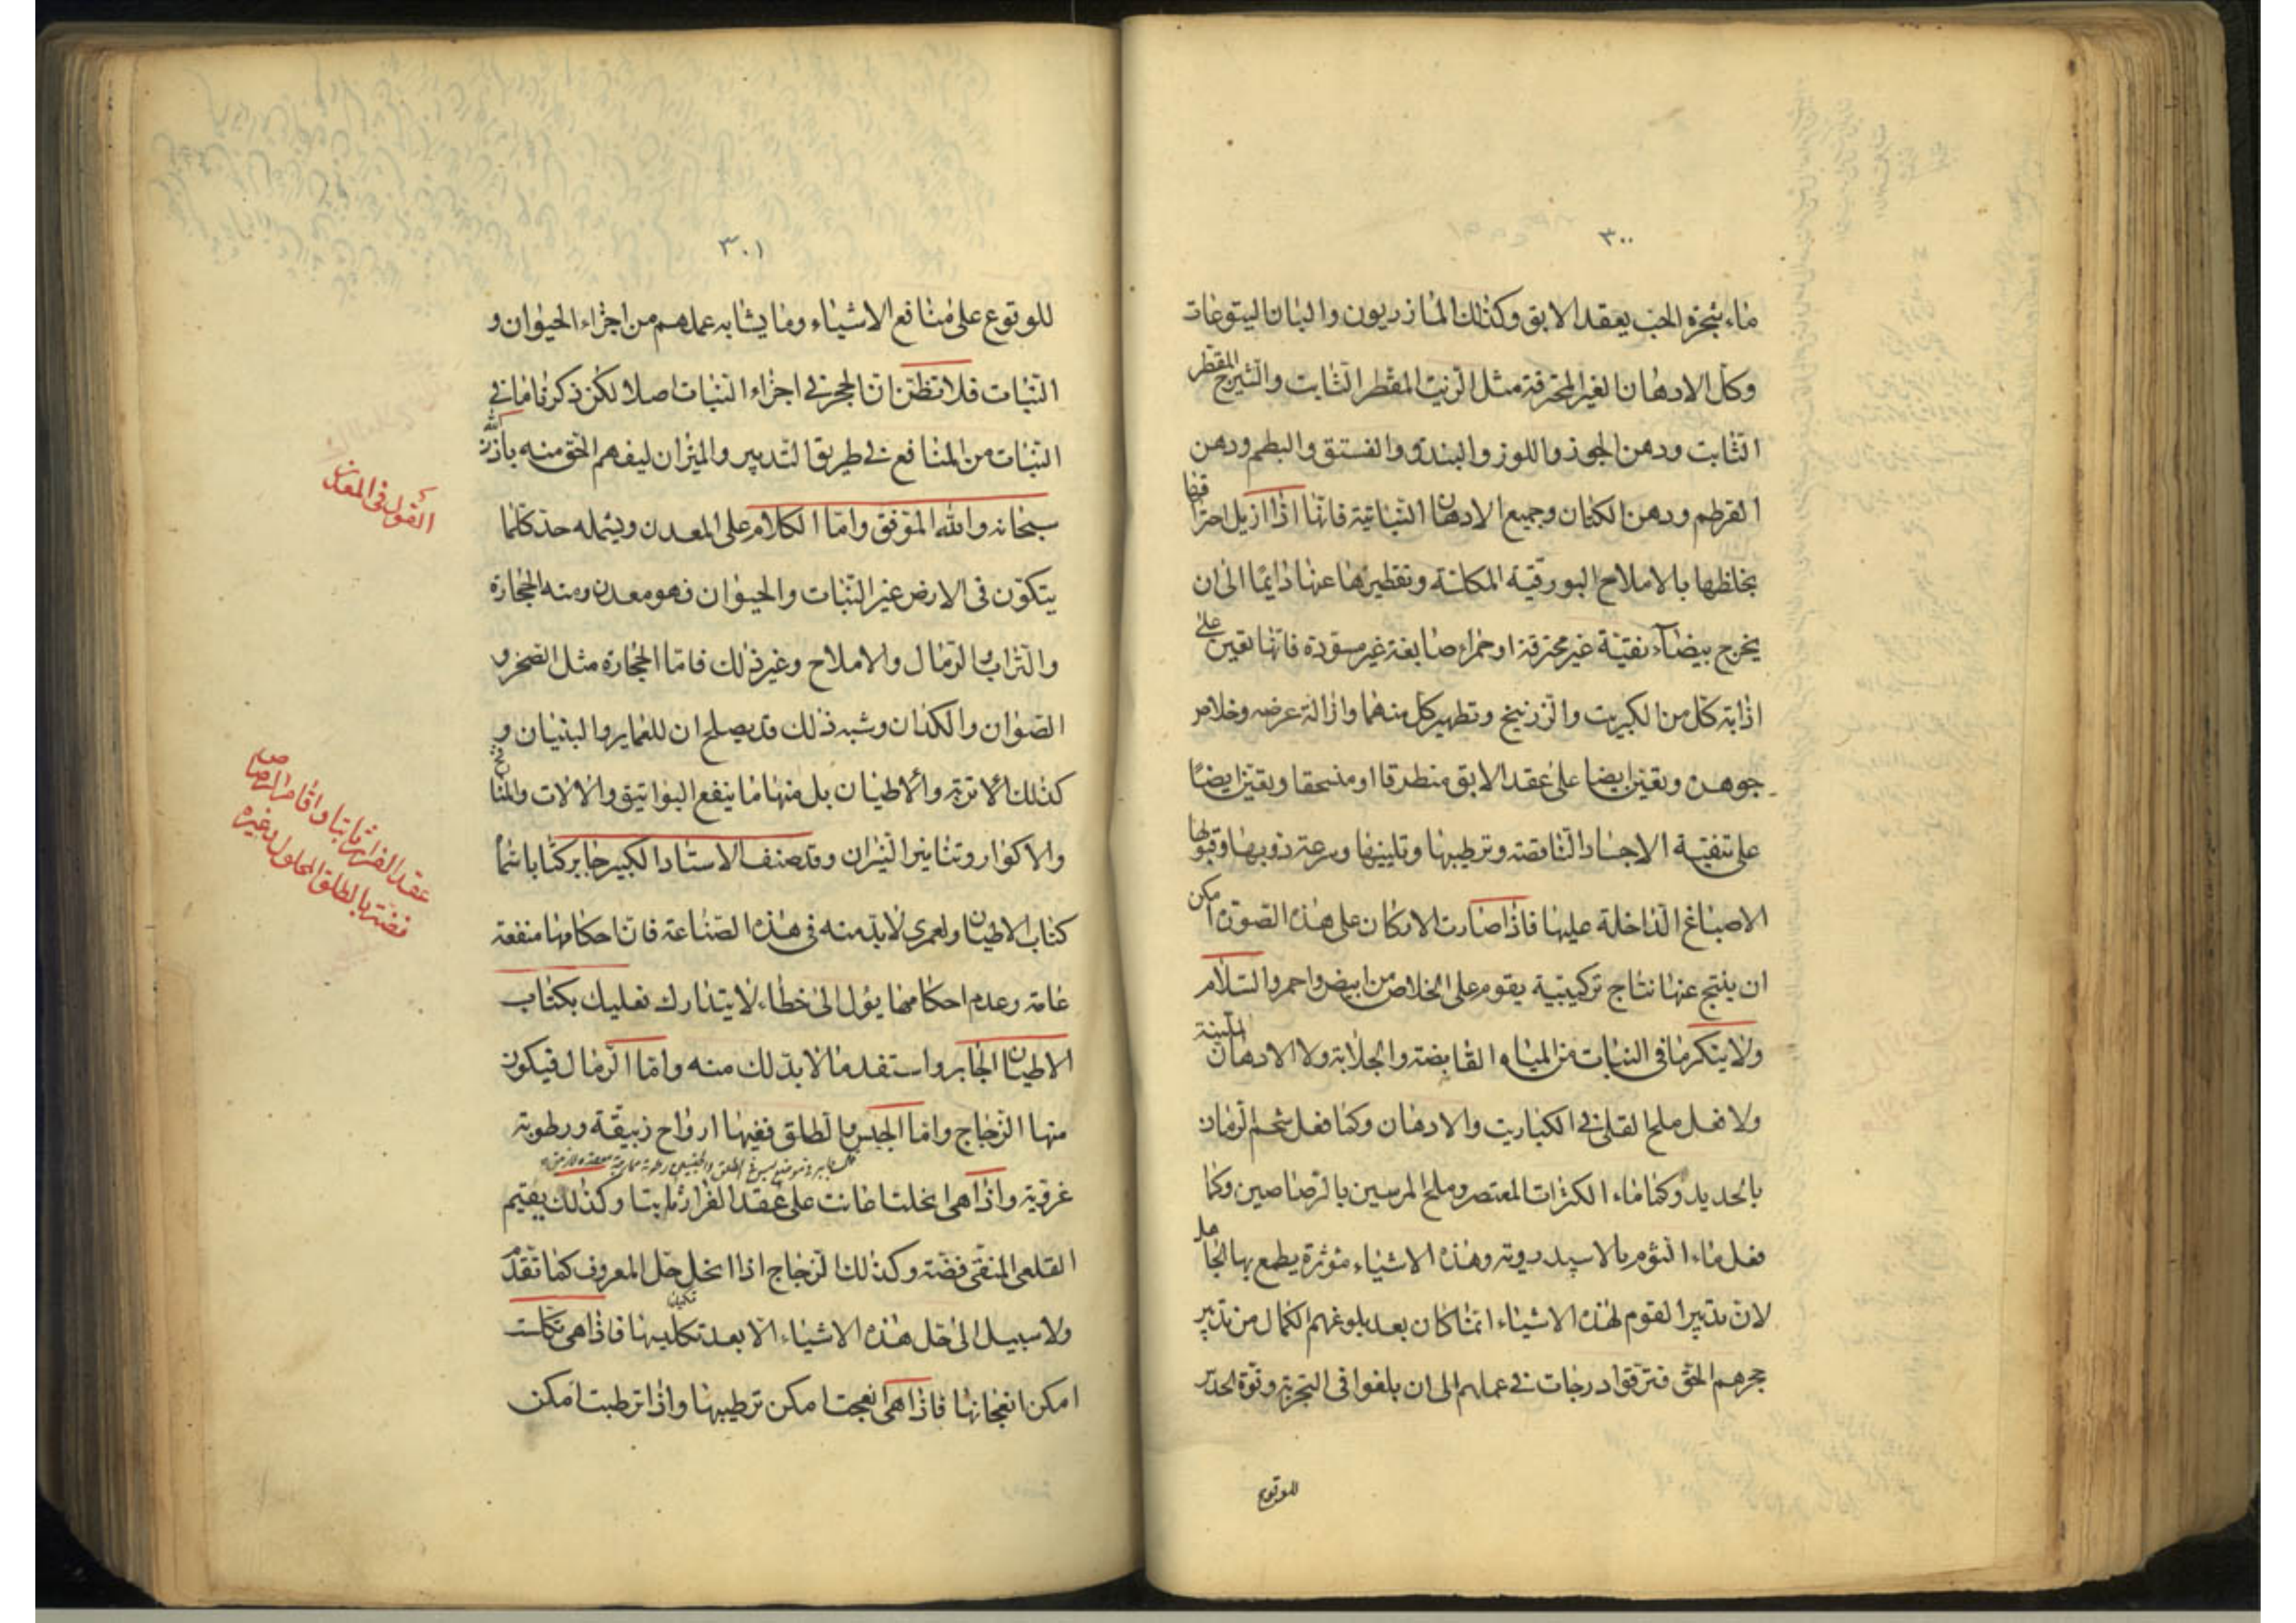 ٣٠٠
ماء شجرة الحب يعقد الابق وكذلك المازريون والبان اليتوعات
وكل الادهان الغير المحترقة مثل الزيت المقطر الثابت والشيرج المقطر
الثابت ودهن الجوز واللوز والبندق والفستق والبطم ودهن
القرطم ودهن الكتان وجميع الادهان النباتية فانها اذا ازيل احتراقها
بخلطها بالاملاح البورقية المكلسة وتقطيرها عنها دايما الى ان
يخرج بيضاء نقية غير محترقة او حمراء صابغة غير مسودة فانها تعين على
اذابة كل من الكبريت والزرنيخ وتطهير كل منهما وازالة عرضه وخلاص
جوهره وتعين ايضا على عقد الابق منطرقا او منسحقا وتعين ايضا
على تنقية الاجساد الناقصة وترطيبها وتليينها وسرعة ذوبها وقبولها
الاصباغ الداخلة عليها فاذا صارت الاركان على هذه الصورة امكن
ان ينتج عنها نتاج تركيبية يقوم على الخلاص من ابيض واحمر والسلام
ولا ينكر ما فى النبات من المياه القابضة والجلابة ولا الادهان الملينة
ولا فعل ملح القلى فى الكباريت والادهان وكذا فعل شحم الرمان
بالحديد وكذا ماء الكراث المعتصر وملح المرسين بالرصاصين وكذا
فعل ماء الثوم بالاسپيدرويه وهذه الاشياء مؤثرة يطمع بها الجاهل
لان تدبير القوم لهذه الاشياء انما كان بعد بلوغهم الكمال من تدبير
حجرهم الحق فترقوا درجات فى عملهم الى ان بلغوا فى التجربة وقوة الحدس
للوقوع
٣٠١
للوقوع على منافع الاشياء وما يشابه عملهم من اجزاء الحيوان و
النبات فلا تظن ان الحجر فى اجزاء النبات اصلا لكن ذكرنا ما فى
النبات من المنافع فى طريق التدبير والميزان ليفهم الحق منه باذن الله
سبحانه والله الموفق واما الكلام على المعدن ويشمله حد كلما
القول فى المعدن
يتكون فى الارض غير النبات والحيوان فهو معدن ومنه الحجارة
والتراب والرمال والاملاح وغير ذلك فاما الحجارة مثل الصخر و
الصوان والكذان وشبه ذلك قد يصلح ان للعماير والبنيان و
كذلك الاتربة والاطيان بل منها ما ينفع البواتيق والالات والمنافخ
والاكوار وتنانير النيران وقد صنف الاستاد الكبير جابر كتابا سماه
عقد الفرار ثابتا واقام الرصاص
فضة بالطلق المحلول وغيره
كتاب الاطيان ولعمرى لا بد منه فى هذه الصناعة فان احكامها منفعة
عامة وعدم احكامها يؤل الى خطاء لا يتدارك فعليك بكتاب
الاطيان لجابر واستفد ما لا بد لك منه واما الرمال فيكون
منها الزجاج واما الجبس والطلق ففيها ارواح زيبقة ورطوبة
غروية واذا هى انحلت اعانت على عقد الفرار ثابتا وكذلك يقيم
القلعى المنقى فضة وكذلك الزجاج اذا انحل حل المعروف كما تقدم
ولا سبيل الى حل هذه الاشياء الا بعد تكليسها فاذا هى تكلست
امكن انعجانها فاذا هى انعجنت امكن ترطيبها واذا ترطبت امكن